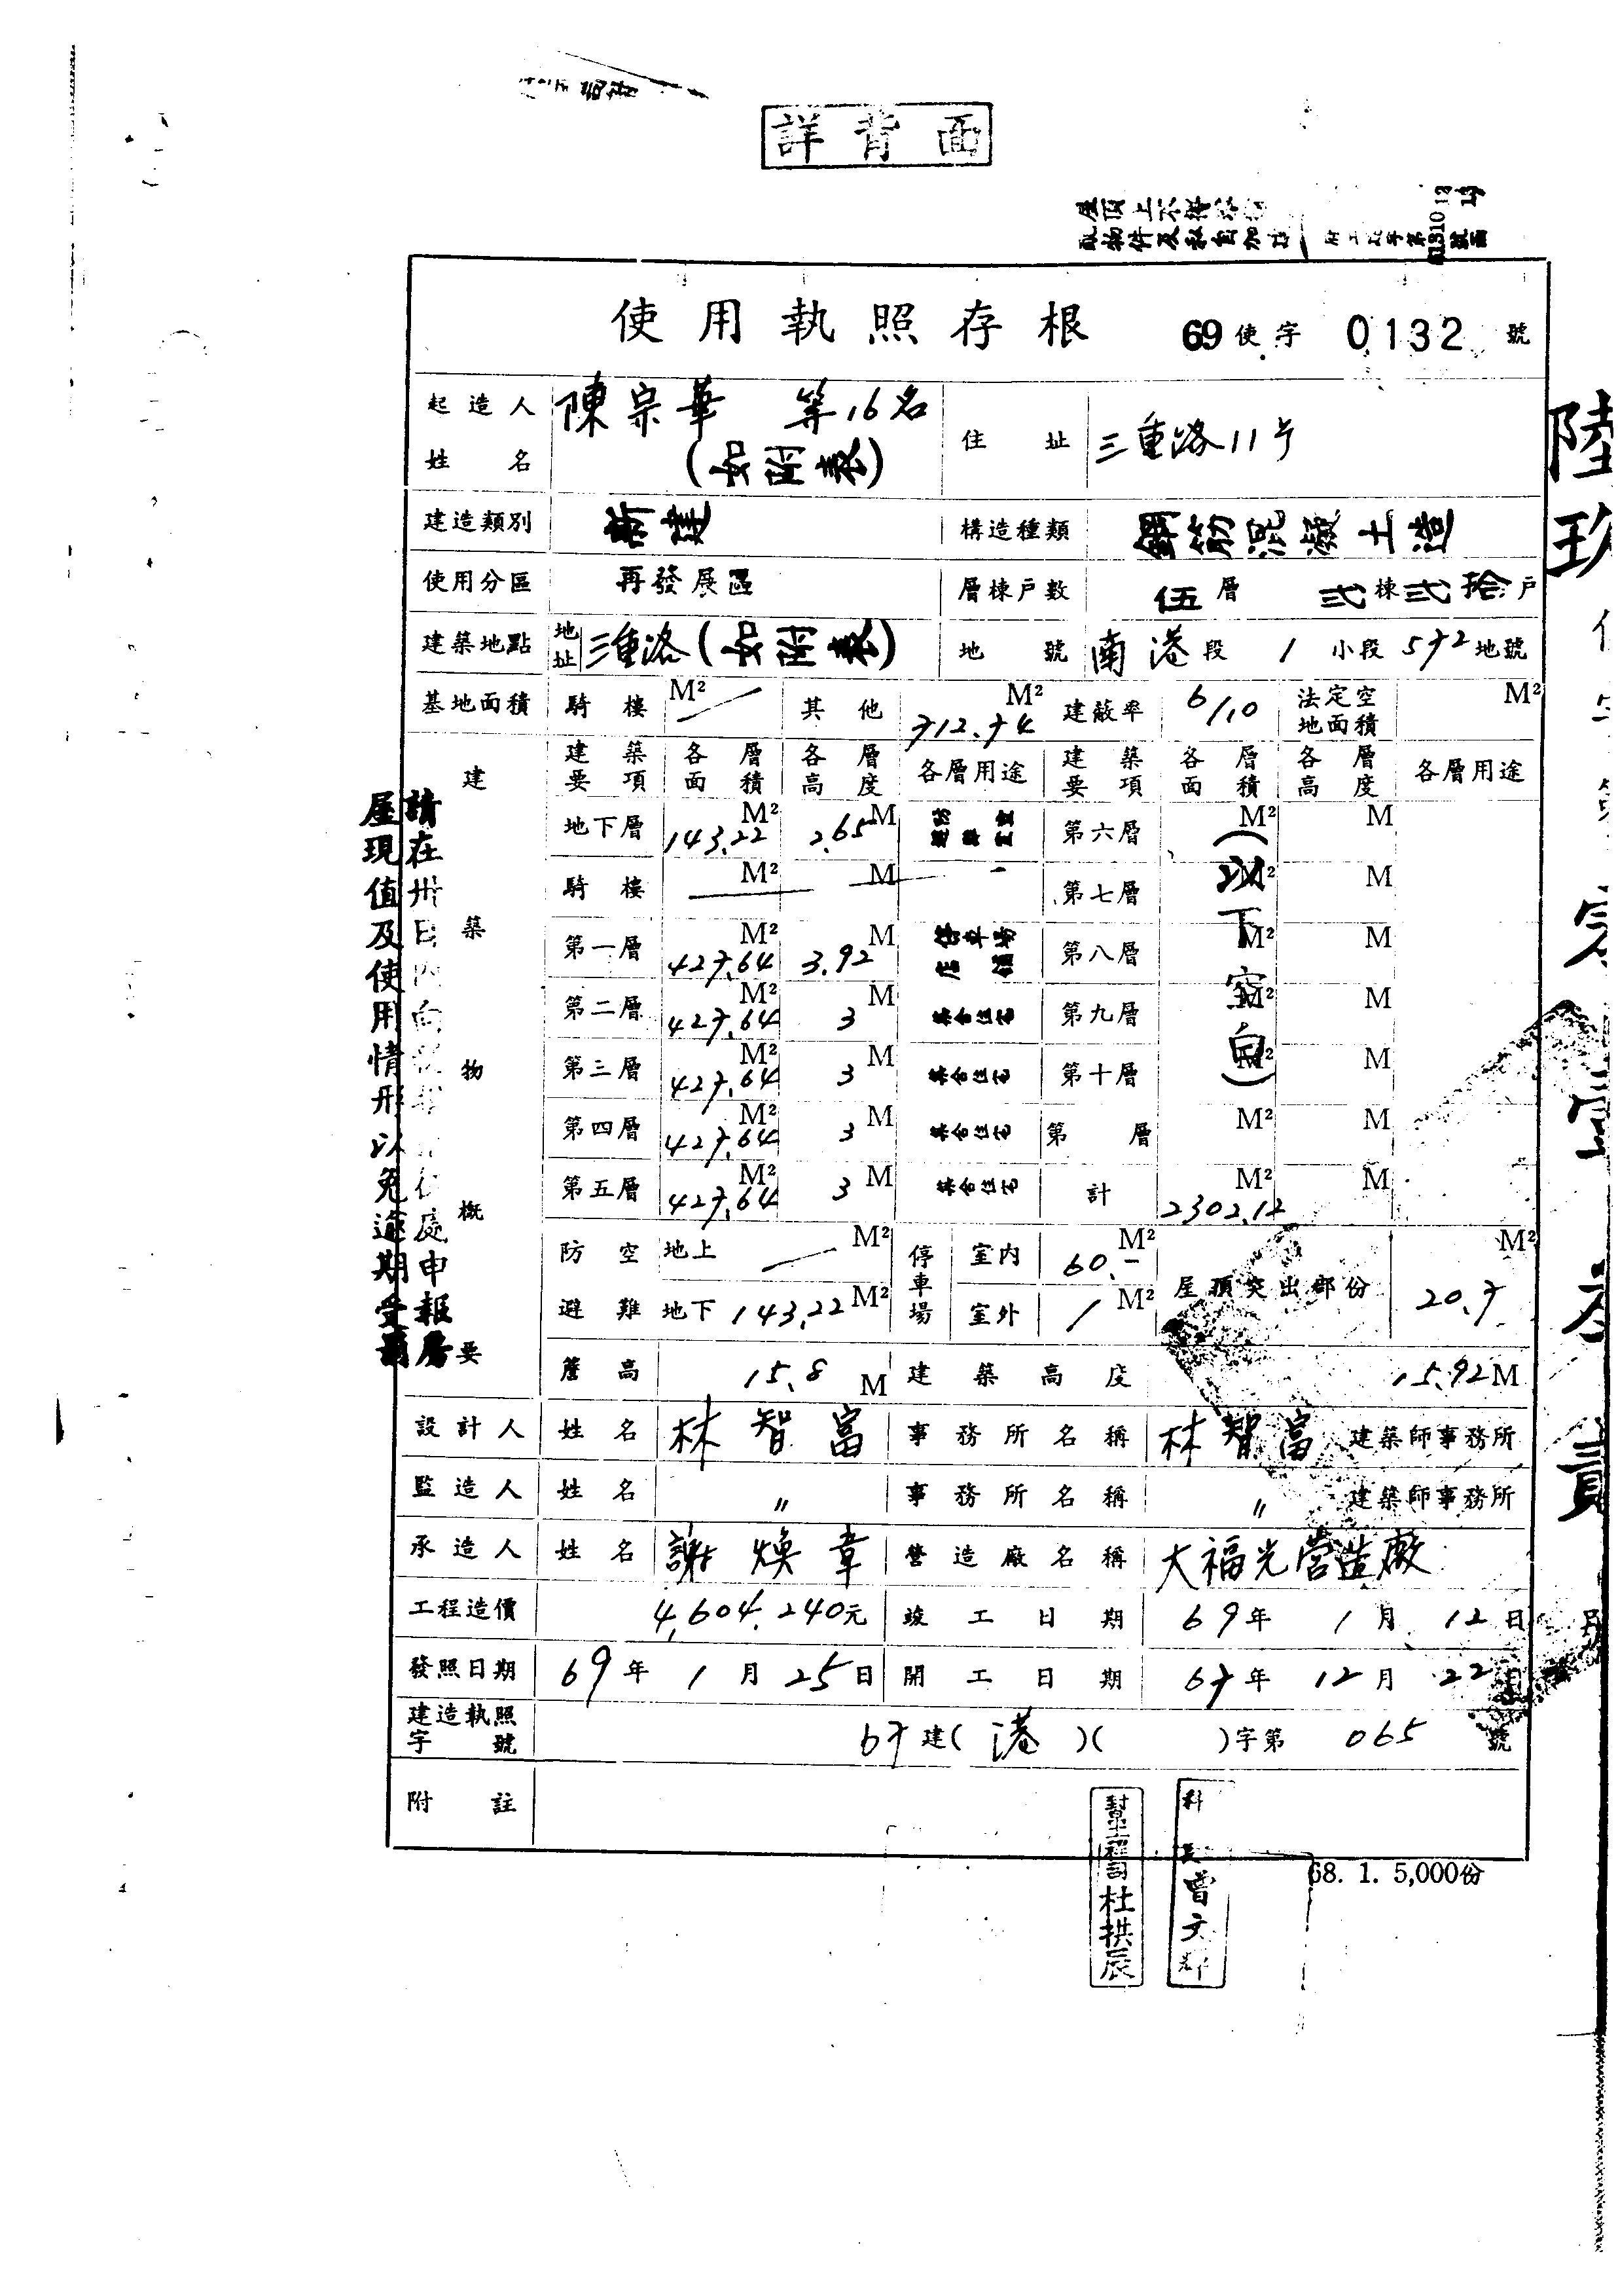 詳背面
屋頂上不得
取物件及私自加
使用執照存根 69使字 0132 號
起造人姓名 陳宗華 等16名 (如附表) 住址 三重路11号
建造類別 新建 構造種類 鋼筋混凝土造
使用分區 再發展區 層棟戶數 伍層 弍棟弍拾戶
建築地點 地址 三重路(如附表) 地號 南港段 1 小段 572地號
基地面積 騎樓 M² 其他 712.74 M² 建蔽率 6/10 法定空地面積 M²
建築物概要 建築要項 各層面積 各層高度 各層用途 建築要項 各層面積 各層高度 各層用途
地下層 143.22 M² 2.65 M 第六層 M² M
騎樓 M² M 第七層 M² M
第一層 427.64 M² 3.92 M 停車場 店舖 第八層 M² M
第二層 427.64 M² 3 M 集合住宅 第九層 M² M
第三層 427.64 M² 3 M 集合住宅 第十層 M² M
第四層 427.64 M² 3 M 集合住宅 第 層 M² M
第五層 427.64 M² 3 M 集合住宅 計 2302.12 M² M
(以下空白)
防空避難 地上 M² 停車場 室內 60.- M² 屋頂突出部份 20.7 M²
地下 143.22 M² 室外 / M²
簷高 15.8 M 建築高度 15.92 M
設計人 姓名 林智富 事務所名稱 林智富 建築師事務所
監造人 姓名 〃 事務所名稱 〃 建築師事務所
承造人 姓名 謝煥章 營造廠名稱 大福光營造廠
工程造價 4,604,240元 竣工日期 69年 1月 12日
發照日期 69年 1月 25日 開工日期 67年 12月 22日
建造執照字號 67建(港)( )字第 065 號
附註
68. 1. 5,000份
幫工程司杜拱辰
科長曾文
請在卅日內向 處申報房
屋現值及使用情形以免逾期受罰
陸玖